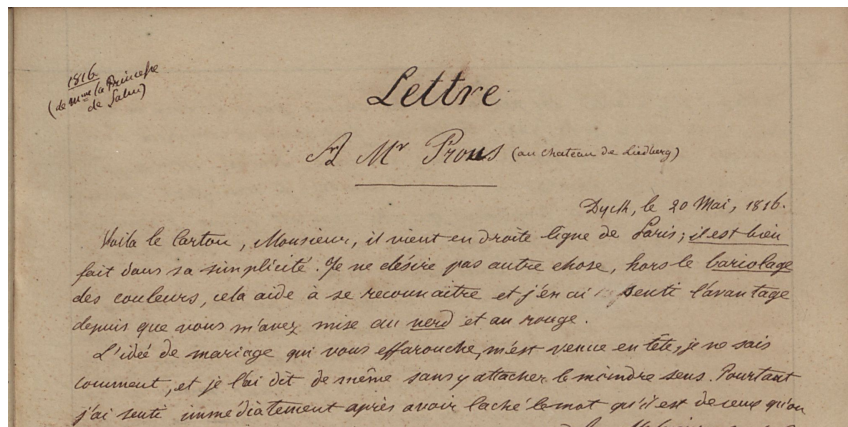 1816.
(de Mme la Princesse
de Salm)
Lettre
A Mr Prous (au chateau de Liedberg)
Dyck, le 20 Mai, 1816.
Voila le Carton, Monsieur, il vient en droite ligne de Paris; il est bien
fait dans sa simplicité. Je ne désire pas autre chose, hors le bariolage
des couleurs, cela aide à se reconnaître et j'en ai senti l'avantage
depuis que vous m'avez mise au verd et au rouge.
L'idée de mariage qui vous effarouche, m'est venue en tête, je ne sais
comment, et je l'ai dit de même sans y attacher le moindre sens. Pourtant
j'ai senti immédiatement après avoir laché le mot qu'il est de ceux qu'on